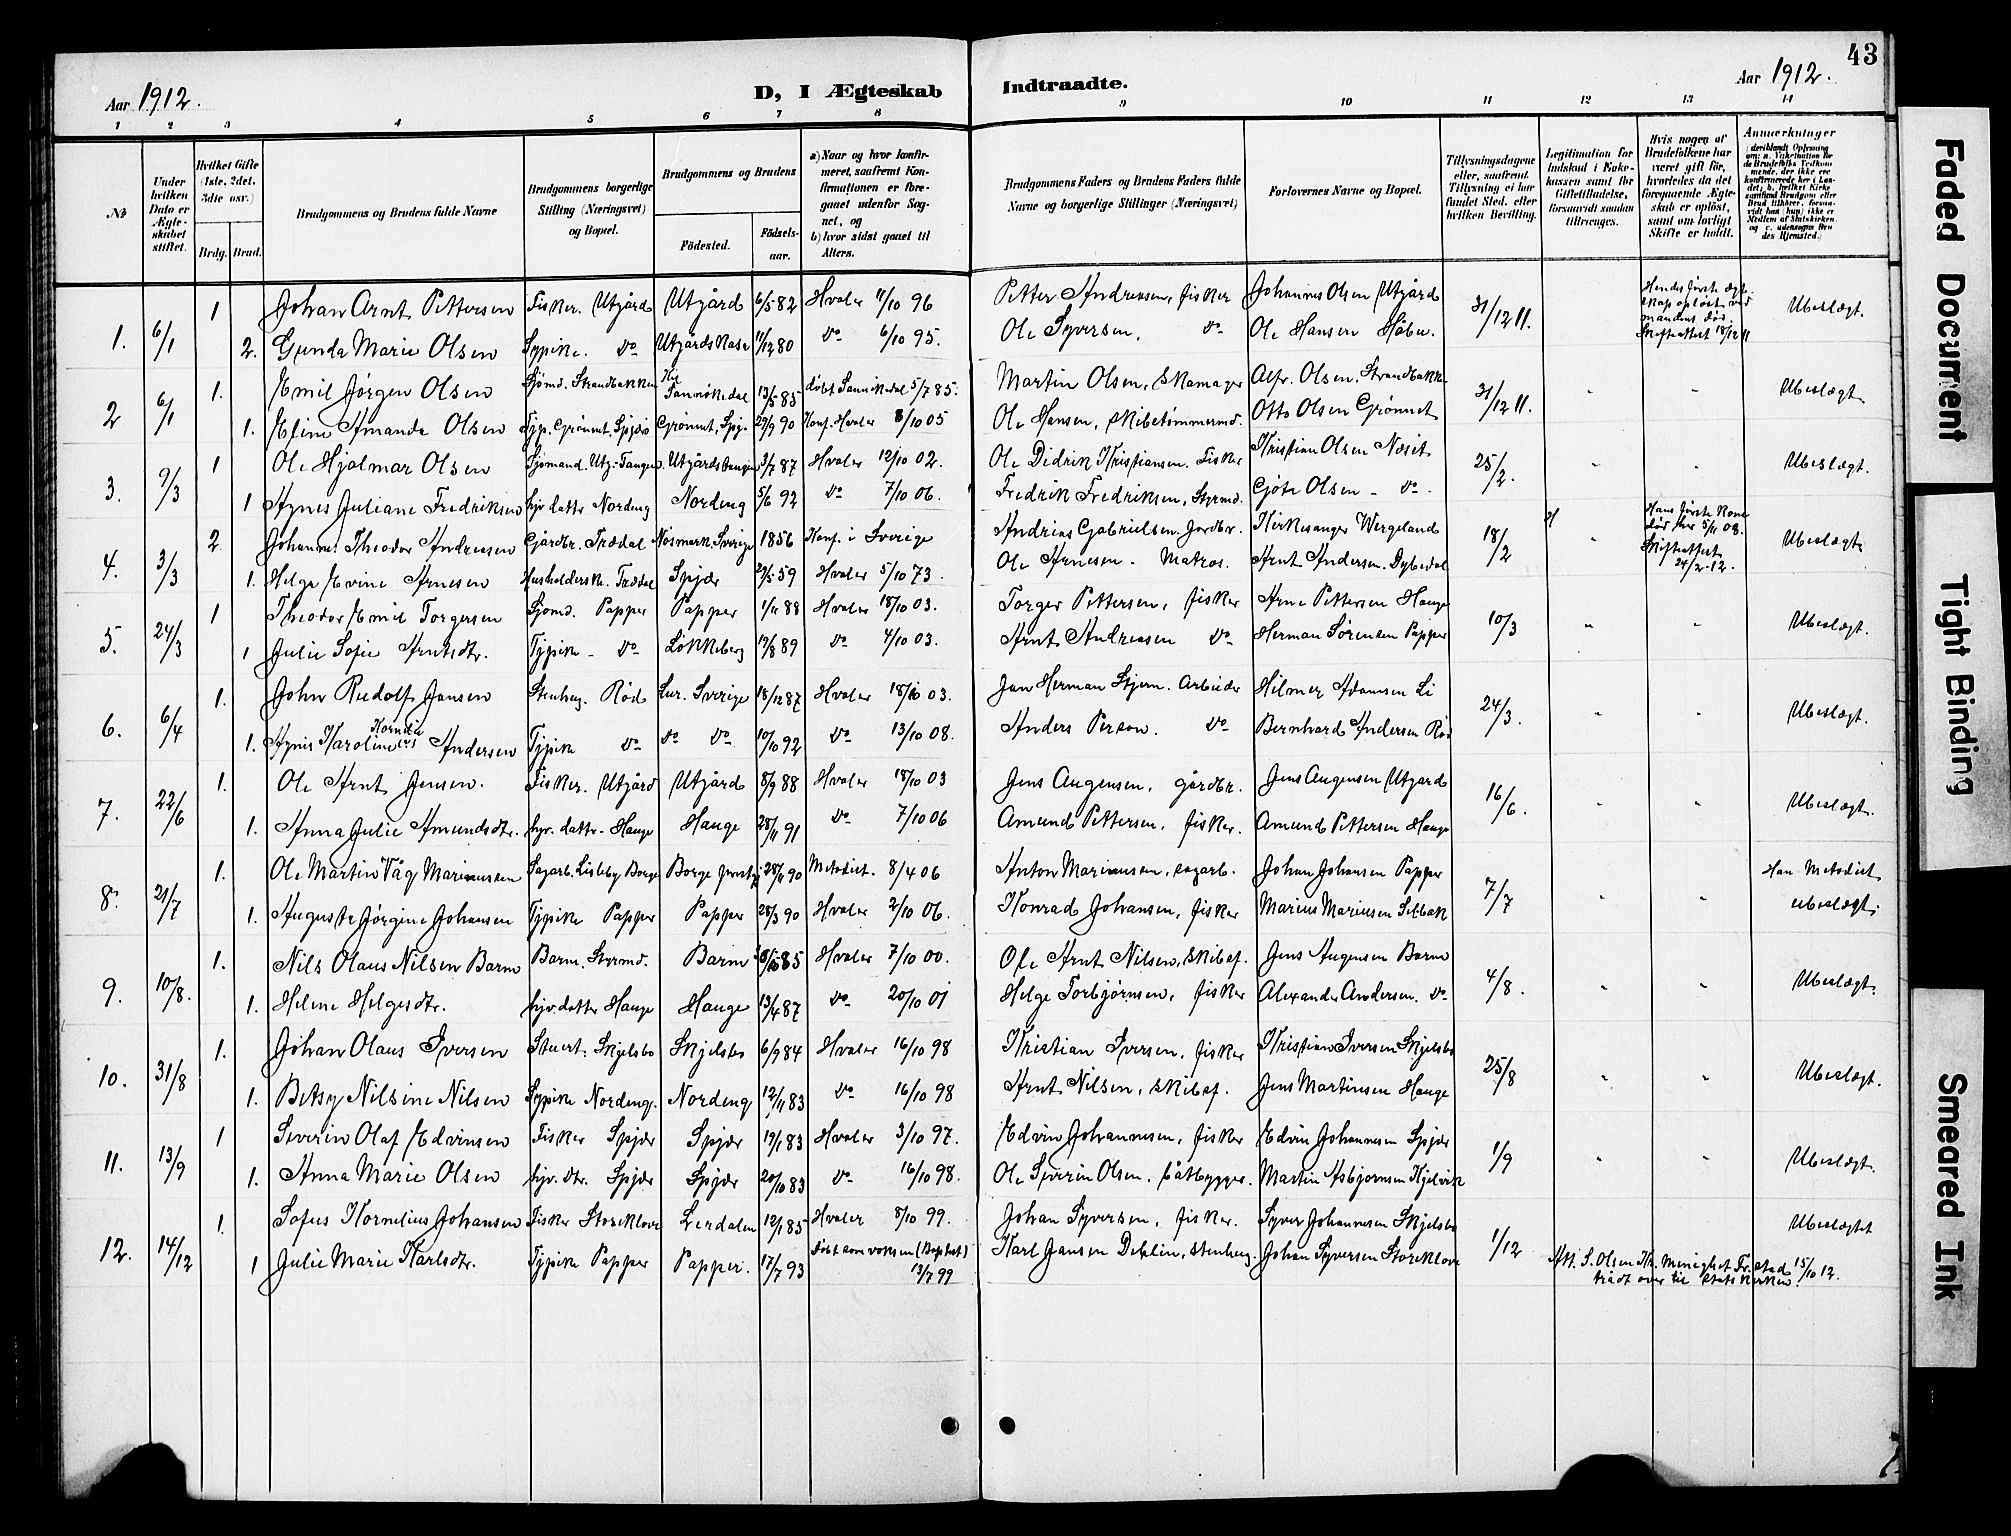 43
Aar 1912.
D, I Ægteskab Indtraadte.
Aar 1912.
1 2 3 4 5 6 7 8 9 10 11 12 13 14
№
Under hvilken Dato er Ægteskabet stiftet.
Hvilket Gifte (1ste, 2det, 3die osv.)
Brdg. Brud.
Brudgommens og Brudens fulde Navne
Brudgommens borgerlige Stilling (Næringsvei) og Bopæl.
Brudgommens og Brudens
Födested.
Födselsaar.
a) Naar og hvor konfirmeret, saafremt Konfirmationen er foregaaet udenfor Sognet, og
b) hvor sidst gaaet til Alters.
Brudgommens Faders og Brudens Faders fulde Navne og borgerlige Stillinger (Næringsvei)
Forlovernes Navne og Bopæl.
Tillysningsdagene eller, saafremt Tillysning ei har fundet Sted, efter hvilken Bevilling.
Legitimation for Indskud i Enkekassen samt for Giftetilladelse, forsaavidt saadan tiltrænges.
Hvis nogen af Brudefolkene har været gift för, hvorledes da det foregaaende Ægteskab er oplöst, samt om lovligt Skifte er holdt.
Anmærkninger
1. 6/1 1 Johan Arnt Pettersen Fisker. Utgård Utgård 6/5 82 Hvaler 4/10 96 Petter Andreasen, fisker Johannes Olsen Utgård 31/12 11. Hendes første ægteskap opløst ved mandens død. Skifteattest 18/12 11 Ubeslægt.
2. Gunda Marie Olsen Sypike. do Utgårds Kasa 11/12 80 do 6/10 95. Ole Syversen, do Ole Hansen Håbu.
2 6/1 1. Emil Jørgen Olsen Sjømd. Strandbakken Sannøkedal 13/5 85 døbt Sannikedal 5/7 85. Martin Olsen, Skomager Alfr. Olsen. Strandbakk. 31/12 11. " " Ubeslægt
1. Eline Amanda Olsen Typ. Grønnet, Spjær Grønnet, Spj. 27/9 90 Konf. Hvaler 8/10 05 Ole Hansen, Skibstømmermd. Otto Olsen Grønnet
3. 9/3 1 Ole Hjalmar Olsen Sjömand. Utg. Tangen Utgårdstangen 3/7 87 Hvaler 12/10 02. Ole Didrik Kristiansen. Fisker Kristian Olsen Noset 25/2. " " Ubeslægt.
1 Agnes Juliane Fredriksen hjv. datter Nordeng Nordeng 5/6 92 do 7/10 06. Fredrik Fredriksen, Styrmd. Gjøte Olsen - do -
4. 3/3 2. Johannes Theodor Andreasen Gårdbr. Trædal Nösmark. Sverige 1856 Konf. i Sverige Andreas Gabrielsen, Jordbr. Kirkesanger Wergeland 18/2 " Hans første Kone død her 5/11 08. Skifteattest 24/2-12. Ubeslægt
1. Helga Evine Arnesen Husholderske. Trædal Spjær 29/5 59 Hvaler 5/10 73. Ole Arnesen - Matros. Arnt Andersen. Dybedal
5. 24/3 1 Theodor Emil Torgersen Sjomd. Papper Papper 1/11 88 Hvaler 18/10 03. Torger Pettersen, fisker Arne Pettersen Hauge 10/3 " " Ubeslægt.
1 Julie Sofie Arntsdtr. Typike - do Løkkeberg 19/8 89 do 4/10 03. Arnt Andreasen do Herman Sørensen Papper
6. 6/4 1. John Rudolf Jansen Stenhug. Rød Lur. Sverige 18/12 87 Hvaler 18/10 03. Jan Herman Stjern. Arbeider Hilmer Adamsen Li 24/3. " " Ubeslægt.
1. Agnes Karoline Kornelia Andersen Typike do do do 10/10 92 do 13/10 08. Anders Person. do Bernhard Andersen Rød
7. 22/6 1. Ole Arnt Jensen. Fisker. Utgård Utgård 8/9 88 Hvaler 18/10 03 Jens Augensen, gårdbr. Jens Augensen Utgard 16/6. " " Ubeslægt.
1. Anna Julie Amundsdtr. hjv. datter - Hauge Hauge 28/11 91 do 7/10 06 Amund Pettersen, fisker. Amund Pettersen Hauge
8. 21/7 1. Ole Martin Våg Mariussen Sagarb. Lisleby Borge Borge 28/11 90 Metodist. 8/4 06 Anton Mariussen, sagarb. Johan Johansen Papper 7/7 " " Han Metodist
1. Augusta Jørgine Johansen Typike Papper Papper 28/3 90 Hvaler 2/10 06. Konrad Johansen, fisker Marius Mariusen Selbak ubeslægt.
9. 10/8. 1. Nils Olaus Nilsen Barm Barm. Styrmd. Barm 85 Hvaler 7/10 00. Ole Arnt Nilsen, Skibsf. Jens Augensen Barm 4/8. " " Ubeslægt.
1. Helene Helgesdtr. hjv. datter Hauge Hauge 13/4 87 do 20/10 01 Helge Torbjørnsen, fisker Alexander Andersen. do
10. 31/8 1. Johan Olaus Iversen Stuert. Skjelsbo Skjelsbo 6/9 84 Hvaler 16/10 98 Kristian Iversen, fisker Kristian Iversen Skjelsbo 25/8 " " Ubeslægt.
1. Betsy Nilsine Nilsen Sypike Nordeng. Nordeng 12/11 83 do 16/10 98 Arnt Nilsen, Skibsf. Jens Martinsen Hauge
11. 13/9 1 Severin Olaf Edvinsen Fisker Spjær Spjær 19/1 83 Hvaler 3/10 97. Edvin Johannesen, fisker Edvin Johannesen Spjær 1/9 " " Ubeslægt.
1. Anna Marie Olsen hjv. dtr. Spjær Spjær 20/10 83 do 16/10 98. Ole Severin Olsen, båtbygger. Martin Asbjørnsen Kjelvik
12. 14/12 1. Sofus Kornelius Johansen Fisker Storeklove Lerdalen 12/1 85 Hvaler 8/10 99. Johan Syversen, fisker. Syver Johannesen Skjelsbo 1/12 Ubeslægtet
1 Julie Marie Karlsdtr. Typike Papper Papper. 17/7 93 Født som voksen (Baptist) 13/7 99 Karl Jansen Deklin, stenhug. Johan Syversen Storeklove Att. S. Olsen menighet Fr.stad 15/10 12. trådt over til statskirken.
Faded Document
Tight Binding
Smeared Ink